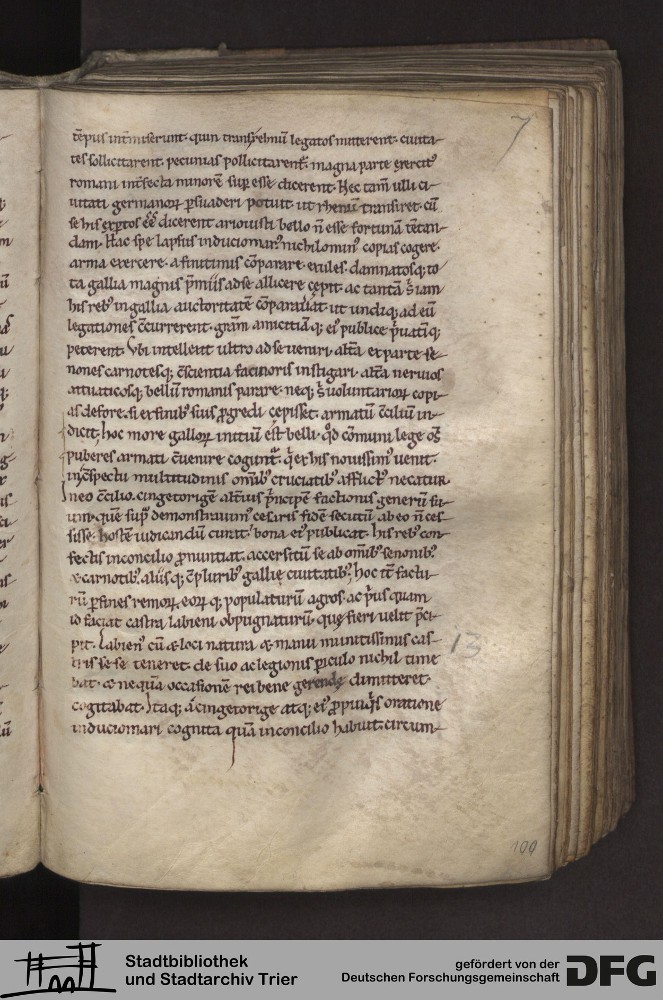 7
tēpus int̄miserunt. quin trans rhenū legatos mitterent. ciuita-
tes sollicitarent. pecunias pollicitarent̄. magna parte exercit᷒
romani int̄fecta minorē suꝑ esse dicerent. Hec tam̄ ulli ci-
uitati germanoꝝ ꝑsuaderi potuit. ut rhenum transiret. cū
se his exꝑtos eē dicerent ariouisti bello n̄ esse fortunā tēcan-
dam. Hac spe lapsus induciomar᷒ nichilomin᷒ copias cogere.
arma exercere. a finitimis cōparare. exules. damnatosq; to-
ta gallia magnis p̄miis ad se allicere cępit. ac tantā s̄ iam
his reb᷒ in gallia auctoritatē cōparauat. ut undiq; ad eū
legationes c̄currerent. grām amicitiā q; ei᷒ publice p̄uatī q;
peterent. Vbi intellexit ultro ad se ueniri. alt̄a ex parte se-
nones carnotesq; c̄scientia facinoris instigari. alt̄a neruios
attuaticosq; bellū romanis parare. neq; s̄ uoluntarioꝝ copi-
as defore. si ex finib᷒ suis ꝓgredi cępisset. armatū c̄ciliū in-
dicit. hoc more galloꝝ initiū est belli. qd̄ cōmuni lege om̄s
puberes armati c̄uenire cogunt̄. q̄ ex his nouissim᷒ uenit.
in c̄spectu multitudinis om̄ib᷒ cruciatib᷒ affict᷒ necatur.
In eo c̄cilio. cingetorigē alt̄ius p̄ncipē factionis generū su-
um. quē sup̄ demonstrauim᷒ cesaris fidē secutū ab eo n̄ ces-
sisse. hostē iudicandū curat. bona ei᷒ publicat. his reb᷒ con-
fectis in concilio ꝓnuntiat. accersitū se ab om̄ib᷒ senonib᷒
& carnotib᷒. aliis q; c̄plurib᷒ gallie ciuitatib᷒. hoc it̄ factu-
rū ꝑ fines remoꝝ. eoꝝ q; populaturū agros. ac p̄us quam
id faciat castra labieni obpugnaturū. quę fieri uelit p̄ci-
pit. Labien᷒ cū & loci natura & manu munitissimis cas-
tris se se teneret. de suo ac legionis ꝑiculo nichil time
bat. & ne quā occasionē rei bene gerendę dimitteret.
cogitabat. Itaq; a cingetorige atq; ei᷒ ꝓpinq̄s oratione
induciomari cognita quā in concilio habuit. circum-
13
100
Stadtbibliothek
und Stadtarchiv Trier
gefördert von der
Deutschen Forschungsgemeinschaft
DFG